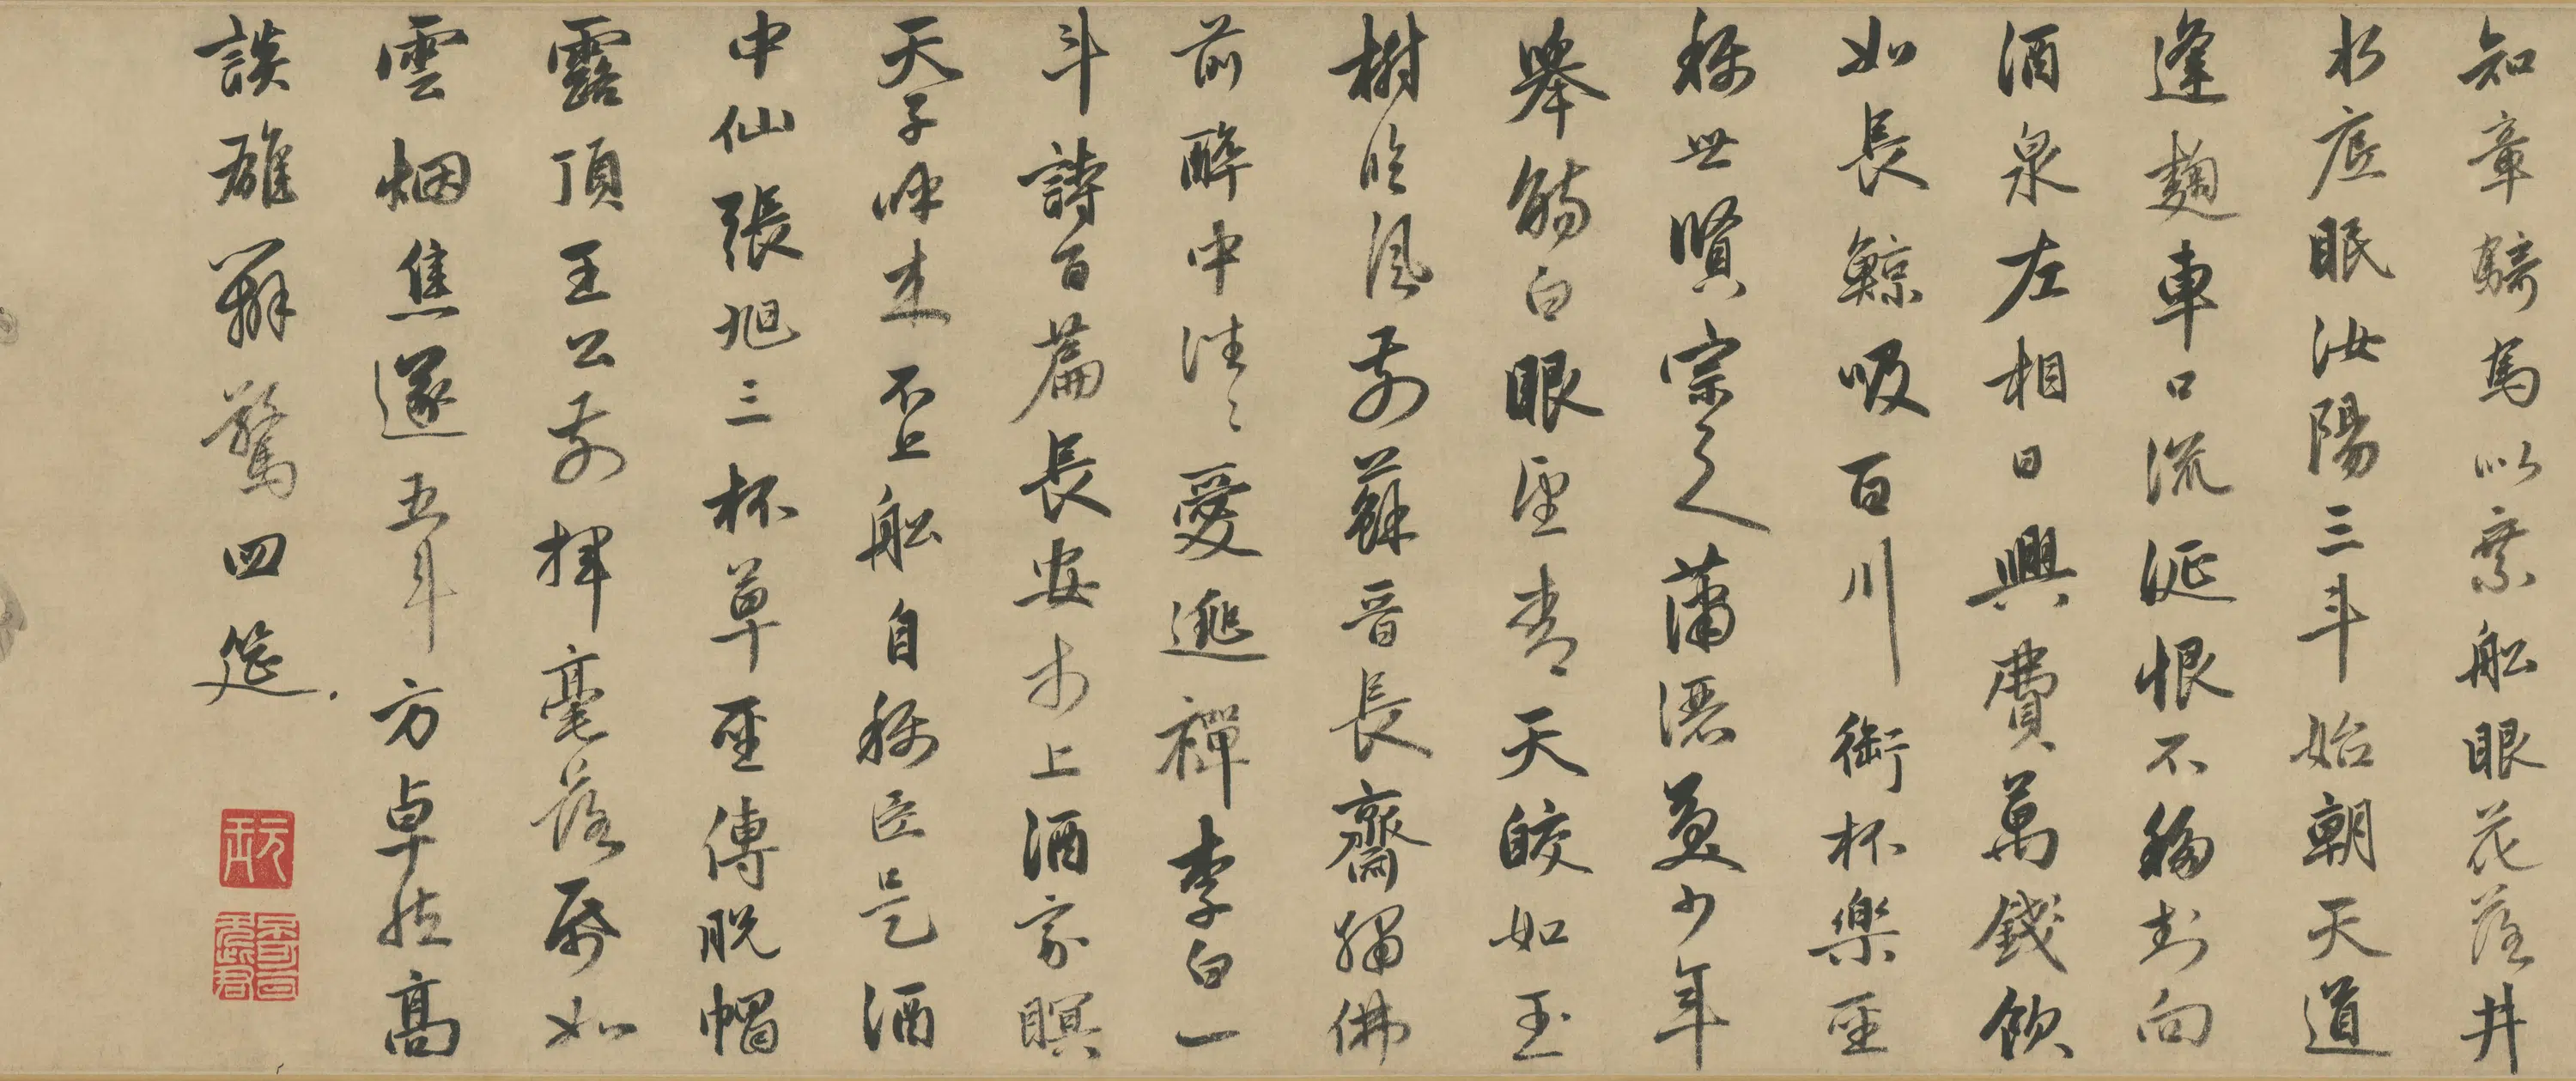 知章騎馬似乘舩眼花落井
水底眠汝陽三斗始朝天道
逢麴車口流涎恨不移封向
酒泉左相日興費萬錢飲
如長鯨吸百川銜杯樂聖
稱世賢宗之蕭灑美少年
舉觴白眼望青天皎如玉
樹臨風前蘇晉長齋繡佛
前醉中往々愛逃禪李白一
斗詩百篇長安市上酒家瞑
天子呼來不上舩自稱臣是酒
中仙張旭三杯草聖傳脫帽
露頂王公前揮毫落紙如
雲烟焦遂五斗方卓然高
談雄辯驚四筵